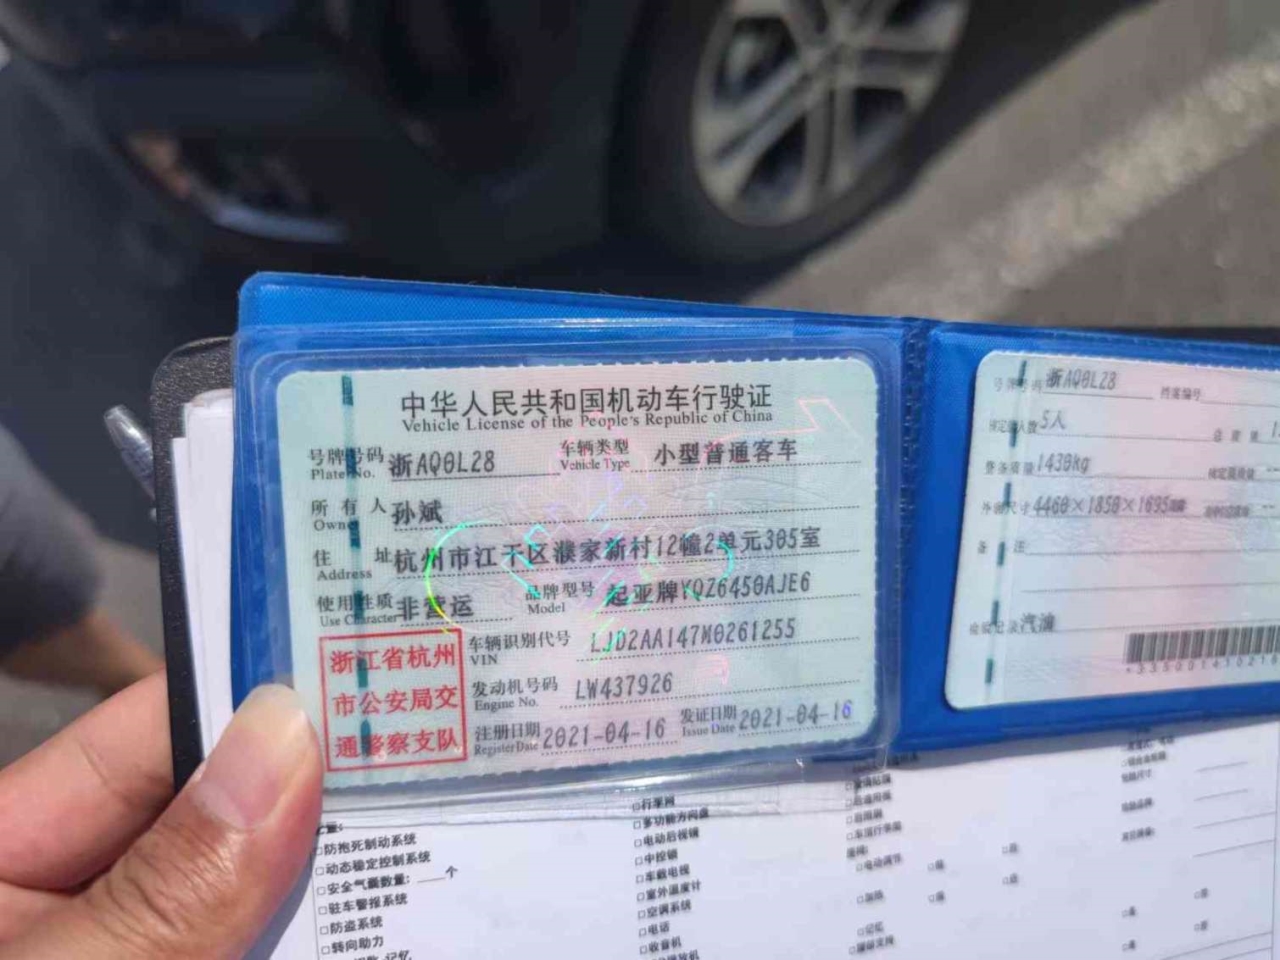 中华人民共和国机动车行驶证
Vehicle License of the People's Republic of China
号牌号码 浙AQ0L28 车辆类型 小型普通客车
Plate No. Vehicle Type
所有人 孙斌
Owner
住址 杭州市江干区濮家新村12幢2单元305室
Address
使用性质 非营运 品牌型号 起亚牌YQZ6450AJE6
Use Character Model
浙江省杭州
市公安局交
通警察支队
车辆识别代号 LJD2AA147M0261255
VIN
发动机号码 LW437926
Engine No.
注册日期 2021-04-16 发证日期 2021-04-16
Register Date Issue Date
号牌号码 浙AQ0L28 档案编号
核定载人数 5人 总质量
整备质量 1430kg 核定载质量
外廓尺寸 4460×1850×1695
备注
检验记录 汽油
□防抱死制动系统
□动态稳定控制系统
□安全气囊数量: 个
□驻车警报系统
□防盗系统
□转向助力
□行李网
□多功能方向盘
□电动后视镜
□中控锁
□车载电视
□室外温度计
□空调系统
□电话
□收音机
□电动调节
□加热
□记忆